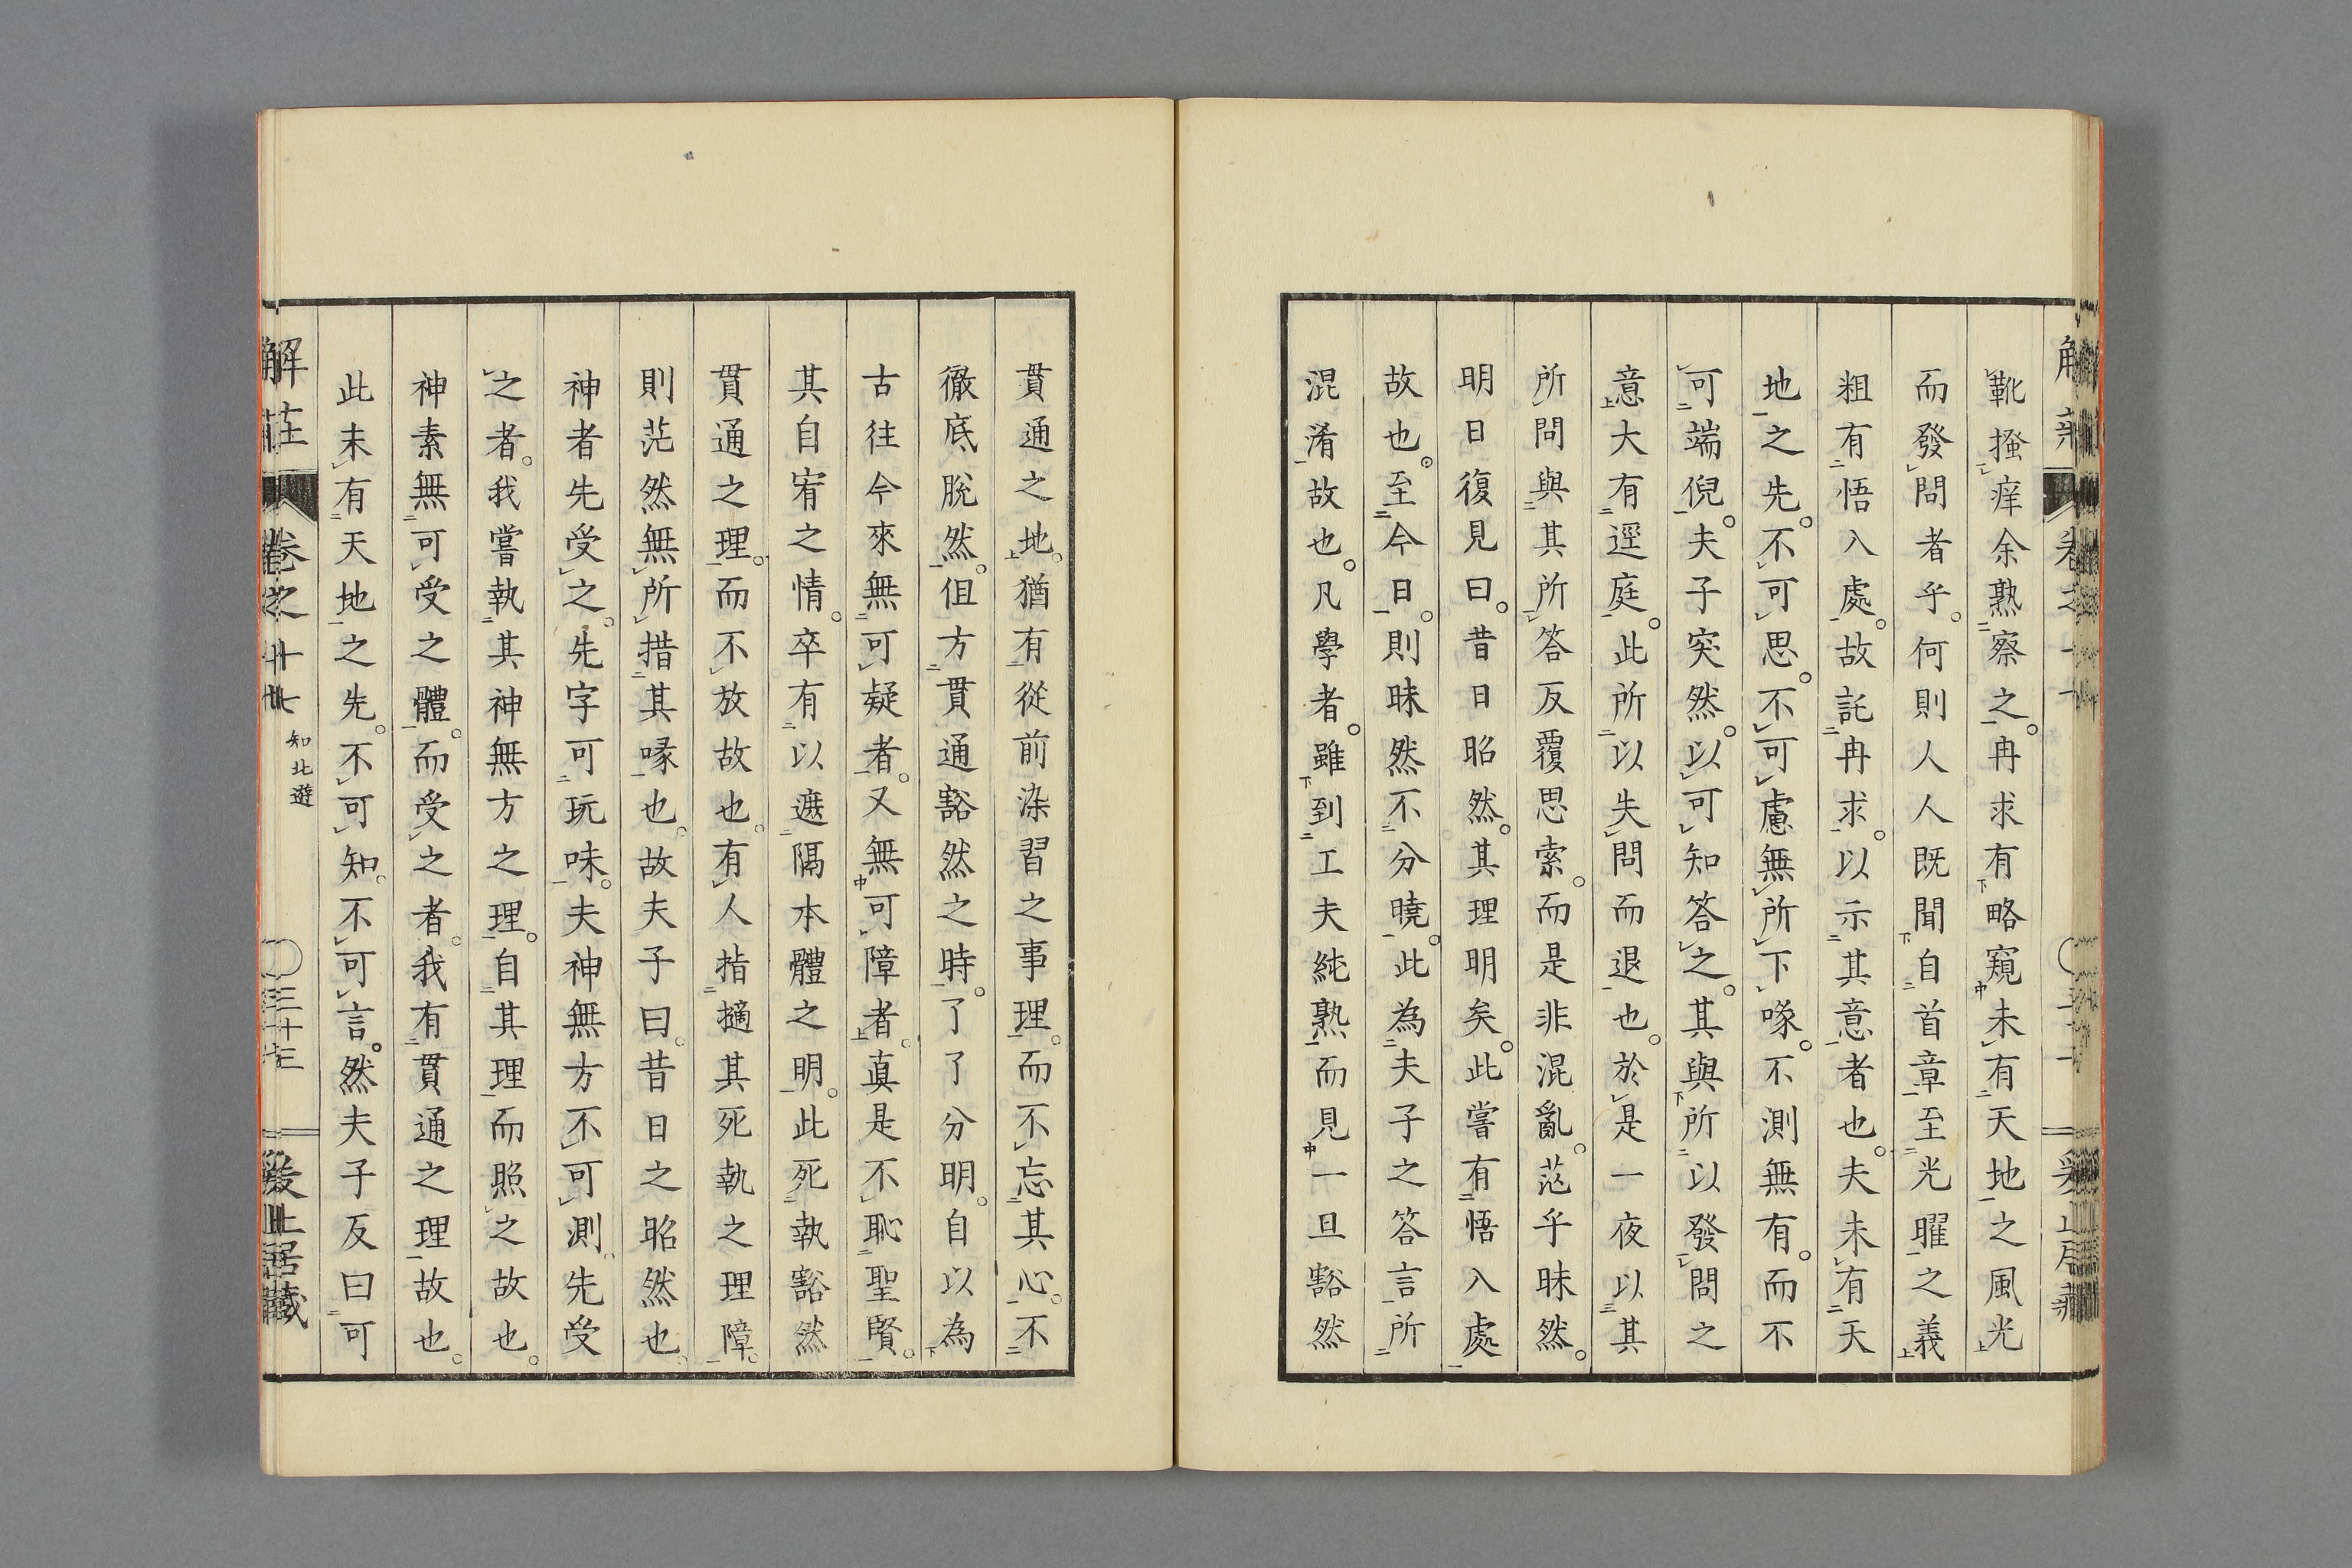 靴搔痒余熟察之。冉求有略窺未有天地之風光
而發問者乎。何則人人既聞自首章至光曜之義
粗有悟入處。故託冉求。以示其意者也。夫未有天
地之先。不可思。不可慮無所下喙。不測無有。而不
可端倪。夫子突然。以可知答之。其與所以發問之
意大有逕庭。此所以失問而退也。於是一夜以其
所問與其所答反覆思索。而是非混亂。茫乎昧然。
明日復見曰。昔日昭然。其理明矣。此嘗有悟入處
故也。至今日。則昧然不分曉。此為夫子之答言所
混淆故也。凡學者。雖到工夫純熟而見一旦豁然
貫通之地。猶有從前染習之事理。而不忘其心。不
徹底脫然。但方貫通豁然之時。了了分明。自以為
古往今來無可疑者。又無可障者。真是不恥聖賢。
其自宥之情。卒有以遮隔本體之明。此死執豁然
貫通之理。而不放故也。有人指擿其死執之理障。
則茫然無所措其喙也。故夫子曰。昔日之昭然也。
神者先受之。先字可玩味。夫神無方不可測先受
之者。我嘗執其神無方之理。自其理而照之故也。
神素無可受之體。而受之者。我有貫通之理故也。
此未有天地之先。不可知。不可言。然夫子反曰可
解莊
卷之十七
知北遊
三十三